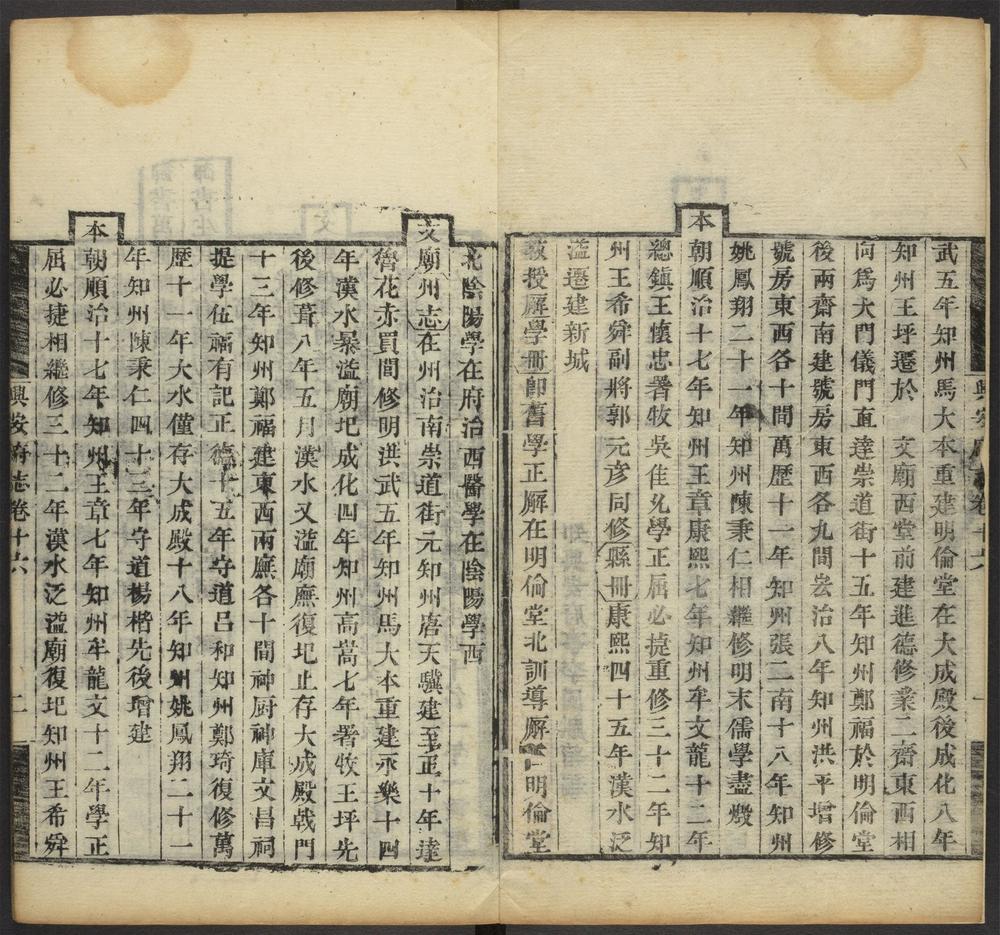 武五年知州馬大本重建明倫堂在大成殿後成化八年
知州王坪遷於　文廟西堂前建進德修業二齋東西相
向爲大門儀門直達崇道街十五年知州鄭福於明倫堂
後兩齋南建號房東西各九間弘治八年知州洪平增修
號房東西各十間萬歷十一年知州張二南十八年知州
姚鳳翔二十一年知州陳秉仁相繼修明末儒學盡燬
本朝順治十七年知州王章康熙七年知州牟文龍十二年
總鎮王懷忠署牧吳佳允學正屈必捷重修三十二年知
州王希舜副將郭元彥同修縣冊康熙四十五年漢水泛
溢遷建新城
教授廨學冊卽舊學正廨在明倫堂北訓導廨舊明倫堂
興安府志卷十六
一
北陰陽學在府治西醫學在陰陽學西
文廟州志在州治南崇道街元知州唐天驥建至正十年達
魯花赤買閭修明洪武五年知州馬大本重建永樂十四
年漢水暴溢廟圮成化四年知州高嵩七年署牧王坪先
後修葺八年五月漢水又溢廟廡復圮止存大成殿戟門
十三年知州鄭福建東西兩廡各十間神厨神庫文昌祠
提學伍福有記正德十五年守道呂和知州鄭琦復修萬
歷十一年大水僅存大成殿十八年知州姚鳳翔二十一
年知州陳秉仁四十三年守道楊楷先後增建
本朝順治十七年知州王章七年知州牟龍文十二年學正
屈必捷相繼修三十二年漢水泛溢廟復圮知州王希舜
興安府志卷十六
二